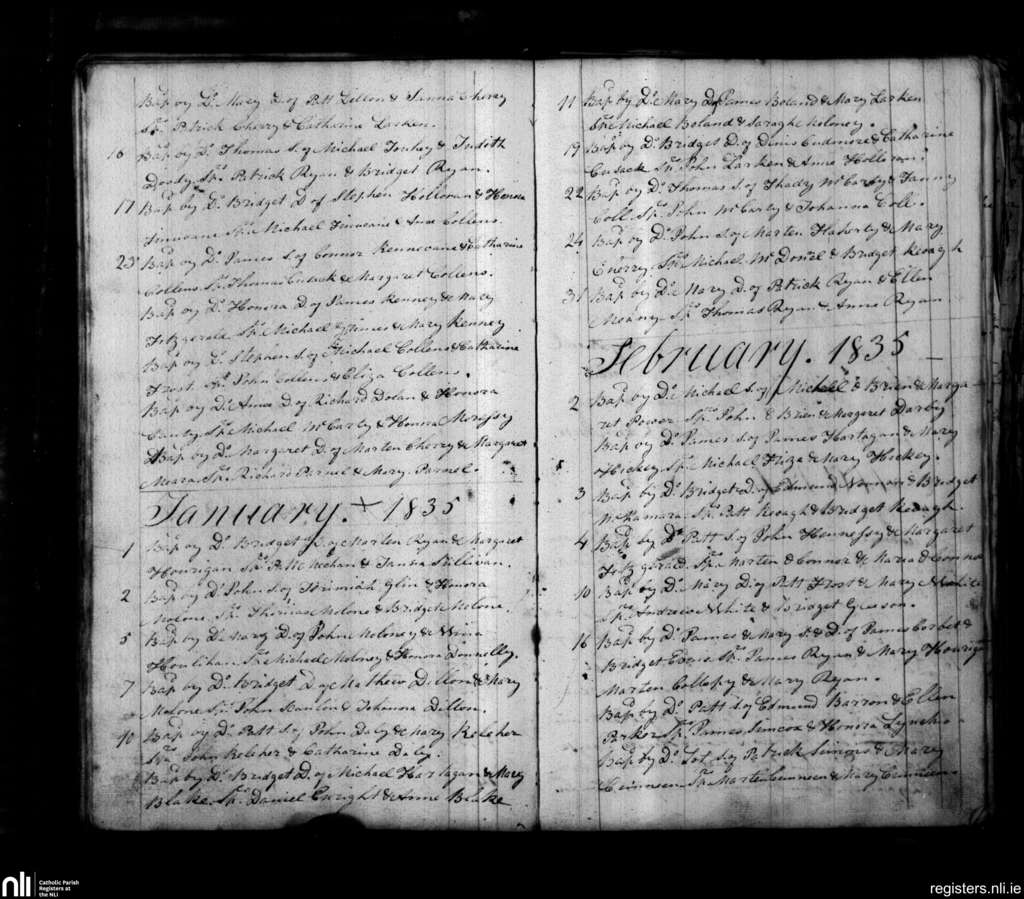 Bap by Do Mary D. of Patt Dillon & Sanna Cherry
Sps Patrick Cherry & Catharine Larken.
16 Bap by Do Thomas S. of Michael Touhey & Judith
Doody Sps Patrick Ryan & Bridget Ryan.
17 Bap by Do Bridget D. of Stephen Holloran & Honora
Sps Michael & Anne Collens.
23 Bap by Do James S. of Connor Kennevane & Catharine
Collens Sps Thomas Cusack & Margaret Collens.
Bap by Do Honora D. of James Kenney & Mary
Fitzgerald Sps Michael & Mary Kenney
Bap by Do Stephen S. of Michael Collens & Catharine
Frost Sps John Collens & Eliza Collens.
Bap by Do Anne D. of Richard Dolan & Honora
Canty Sps Michael McCarty & Honora Morissy
Bap by Do Margaret D. of Marten Cherry & Margaret
Meara Sps Richard Parnel & Mary Parnel.
January. + 1835
1 Bap by Do Bridget D. of Marten Ryan & Margaret
Hourigan Sps P. McMechan & Sullivan.
2 Bap by Do John S. of Jerimiah Glin & Honora
Molone Sps Thomas Molone & Bridget Molone.
5 Bap by Do Mary D. of John Moloney & Wina
Houlihan Sps Michael Moloney & Honora Donnelly.
7 Bap by Do Bridget D. of Mathew Dillon & Mary
Molone Sps John Scanlon & Johanora Dillon.
10 Bap by Do Patt S. of John Daly & Mary Keleher
Sps John Keleher & Catharine Daly.
Bap by Do Bridget D. of Michael Hartagan & Mary
Blake Sps Daniel Enright & Anne Blake
11 Bap by Do Mary D. James Boland & Mary Larken
Sps Michael Boland & Saragh Moloney.
19 Bap by Do Bridget D. of Dinis Cudmore & Catharine
Cusack Sps John Larken & Anne Holloran.
22 Bap by Do Thomas S. of Thady McCarty & Fanny
Coll Sps John McCarty & Johanna Coll.
24 Bap by Do John S. of Marten Flaherty & Mary
Cherry Sps Michael McDonel & Bridget Keough
31 Bap by Do Mary D. of Patrick Ryan & Ellen
Meany Sps Thomas Ryan & Anne Ryan
February. 1835
2 Bap by Do Michael S. of Michael O Brien & Marga
ret Power Sps John O Brien & Margaret Darby
Bap by Do James S. of James Hartagan & Mary
Hickey Sps Michael & Mary Hickey.
3 Bap by Do Bridget D. of Edmund & Bridget
McNamara Sps Patt Keogh & Bridget Keough.
4 Bap by Do Patt S. of John Hennessy & Margaret
Fitzgerald Sps Marten O Connor & Maria O Connor
10 Bap by Do Mary D. of Patt Frost & Mary White
Sps Andrew White & Bridget Gleeson.
16 Bap by Do James & Mary S. & D. of James Corbet &
Bridget Sps James Ryan & Mary Hourigan
Marten Collopy & Mary Ryan.
Bap by Do Patt S. of Edmund Barron & Ellen
Parker Sps James Simcox & Honora
Bap by Do S. of Patrick & Mary
Sps Marten & Mary
nli Catholic Parish
Registers at
the NLI
registers.nli.ie